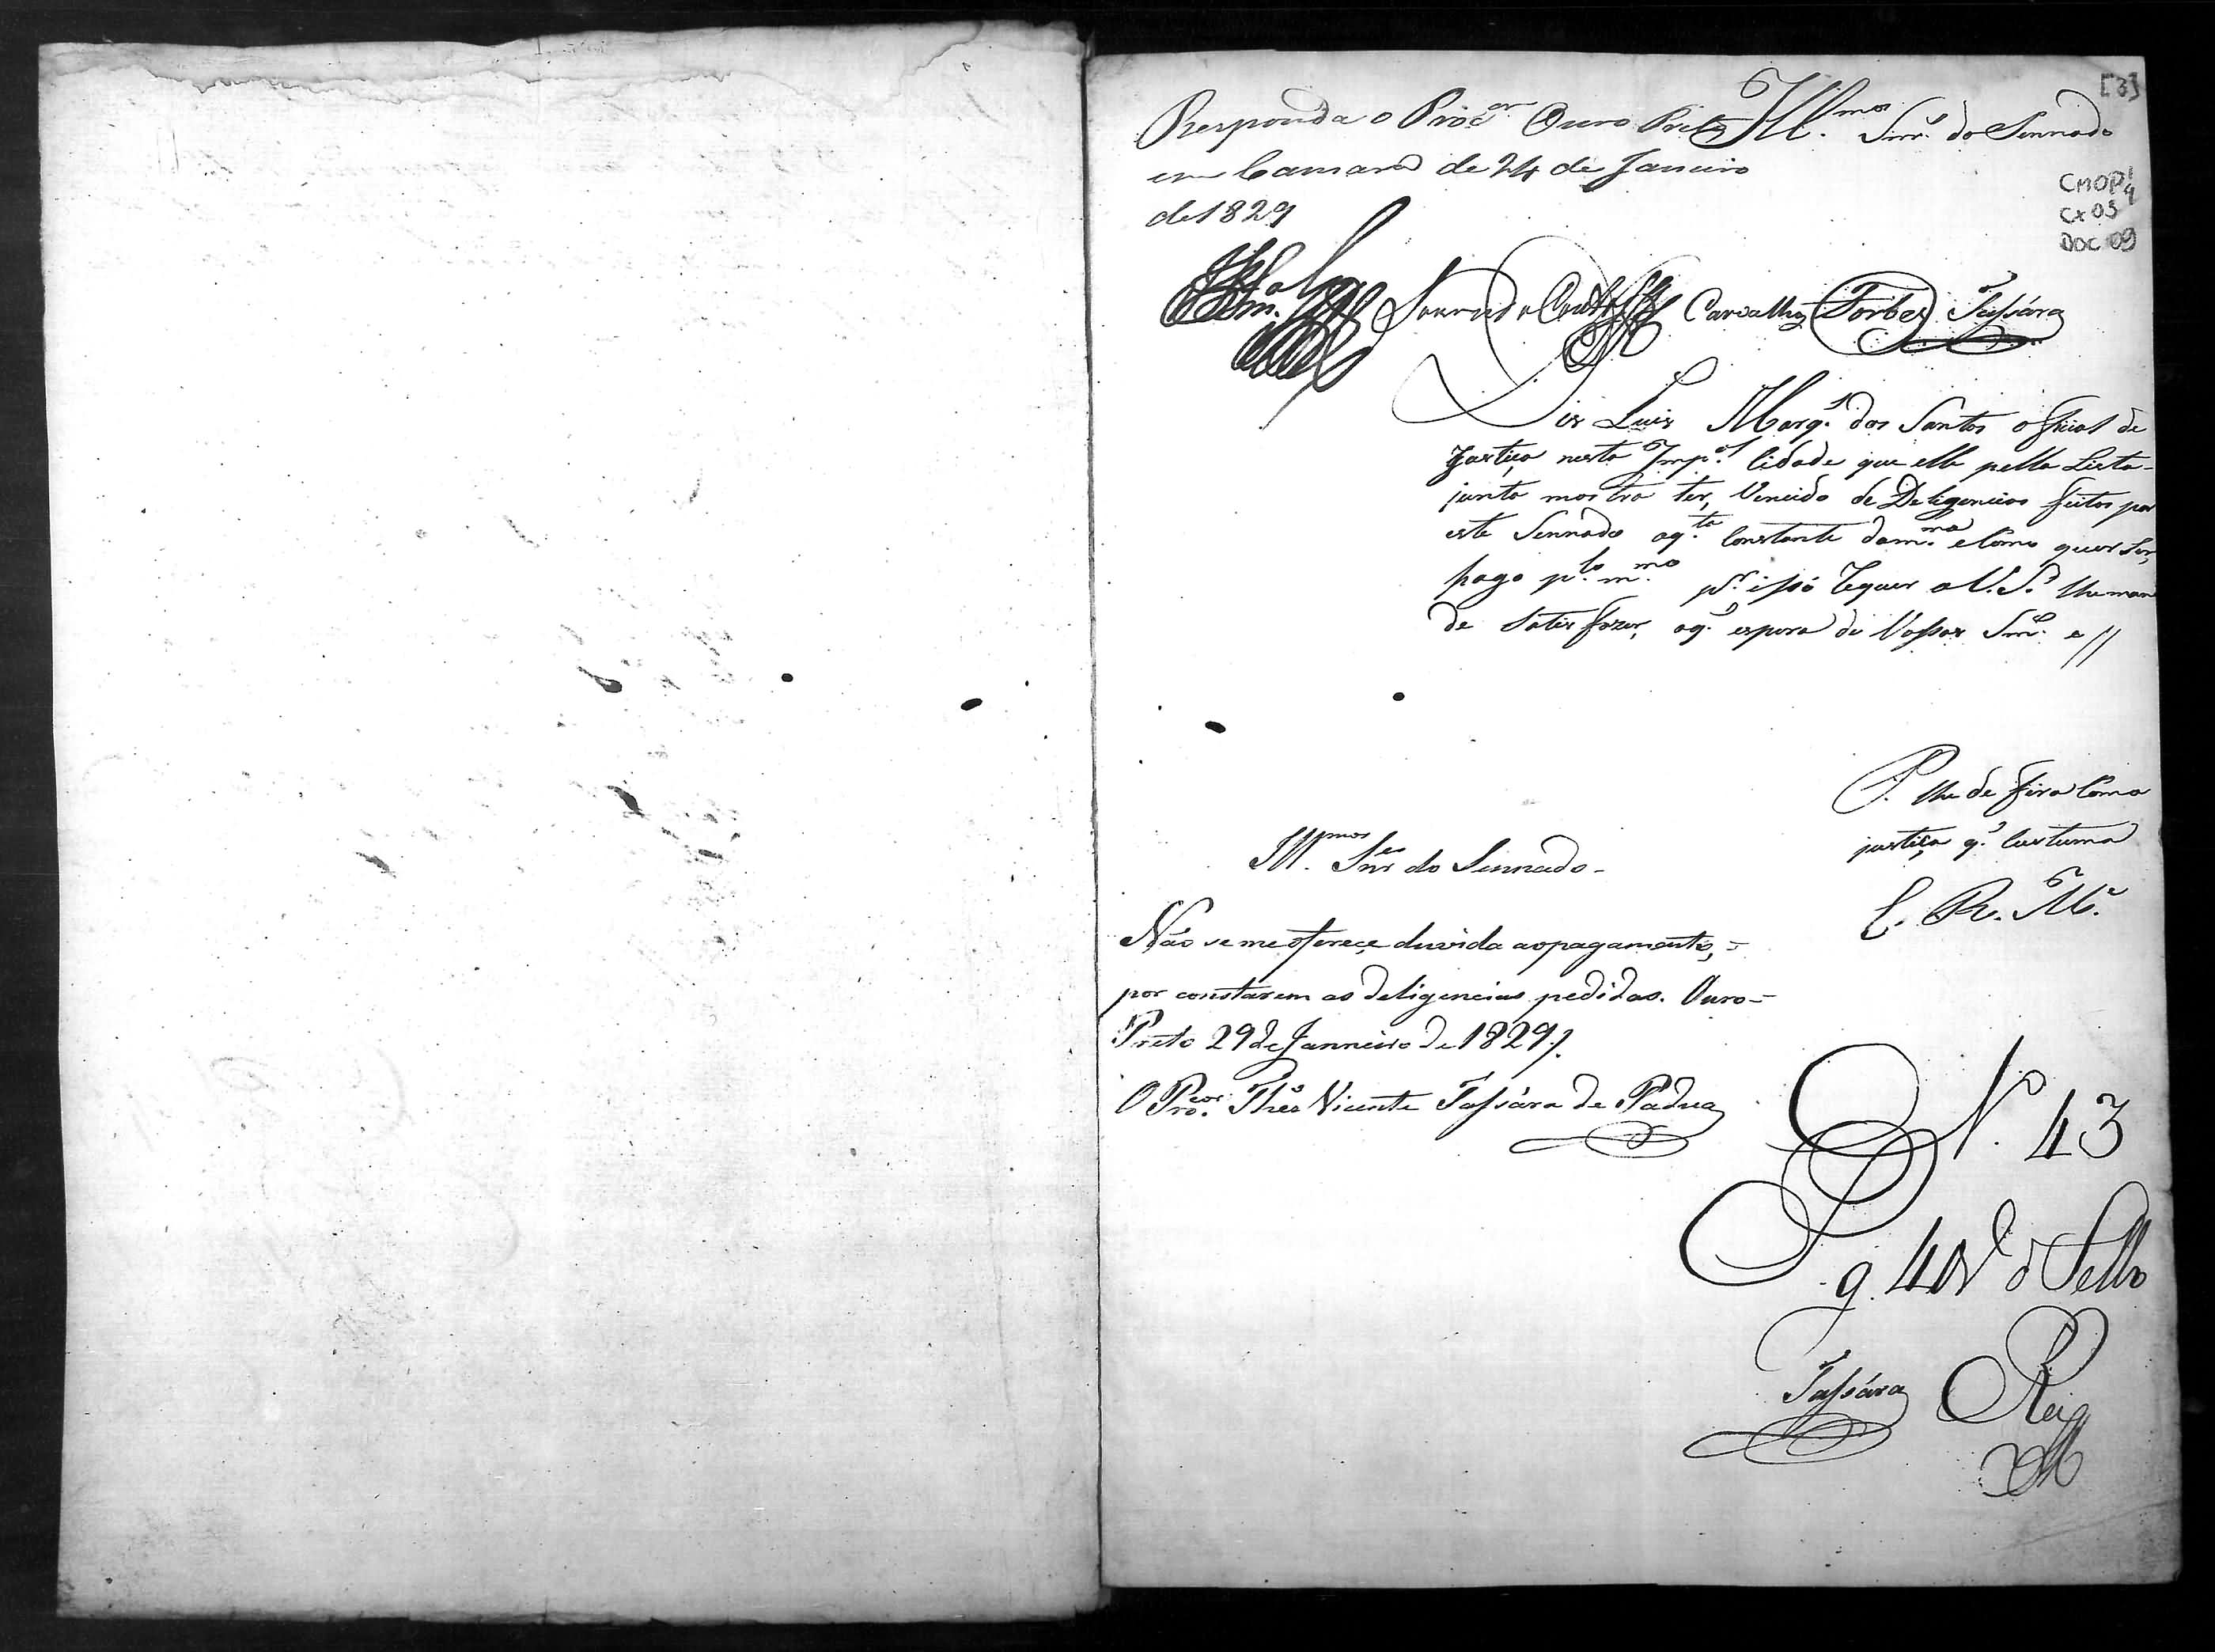 [3]
Responda o Proc.or Ouro Preto
em Camara de 24 de Janeiro
de 1829
Ill.mos Snr.s do Sennado
CMOP
Cx 05
DOC 09
Carvalho Forbes Tassára
Diz Luis Marq.s dos Santos official de
Justiça nesta Imp.al Cidade que elle pella Lista
junta mostra ter, Vencido de Deligencias feitas por
este Sennado aq.ta Constante dam.ma e Como quer Ser,
pago p.lo m.mo p.r isso Requer a V.S.as lhe man
de Satisfazer, aq.e espera de Vossas Sn.as e //
P. lhe de fira Com a
justiça q.e Custuma
E. R. M.ce
Ill.mos Snr.es do Sennado -
Não se me oferece duvida ao pagamento, =
por constarem as deligencias pedidas. Ouro =
Preto 29 de Janneiro de 1829.
O Pro.cor Thes.o Vicente Tassára de Padua
N. 43
Pg. 40 r.s d Sello
Tassára Reis